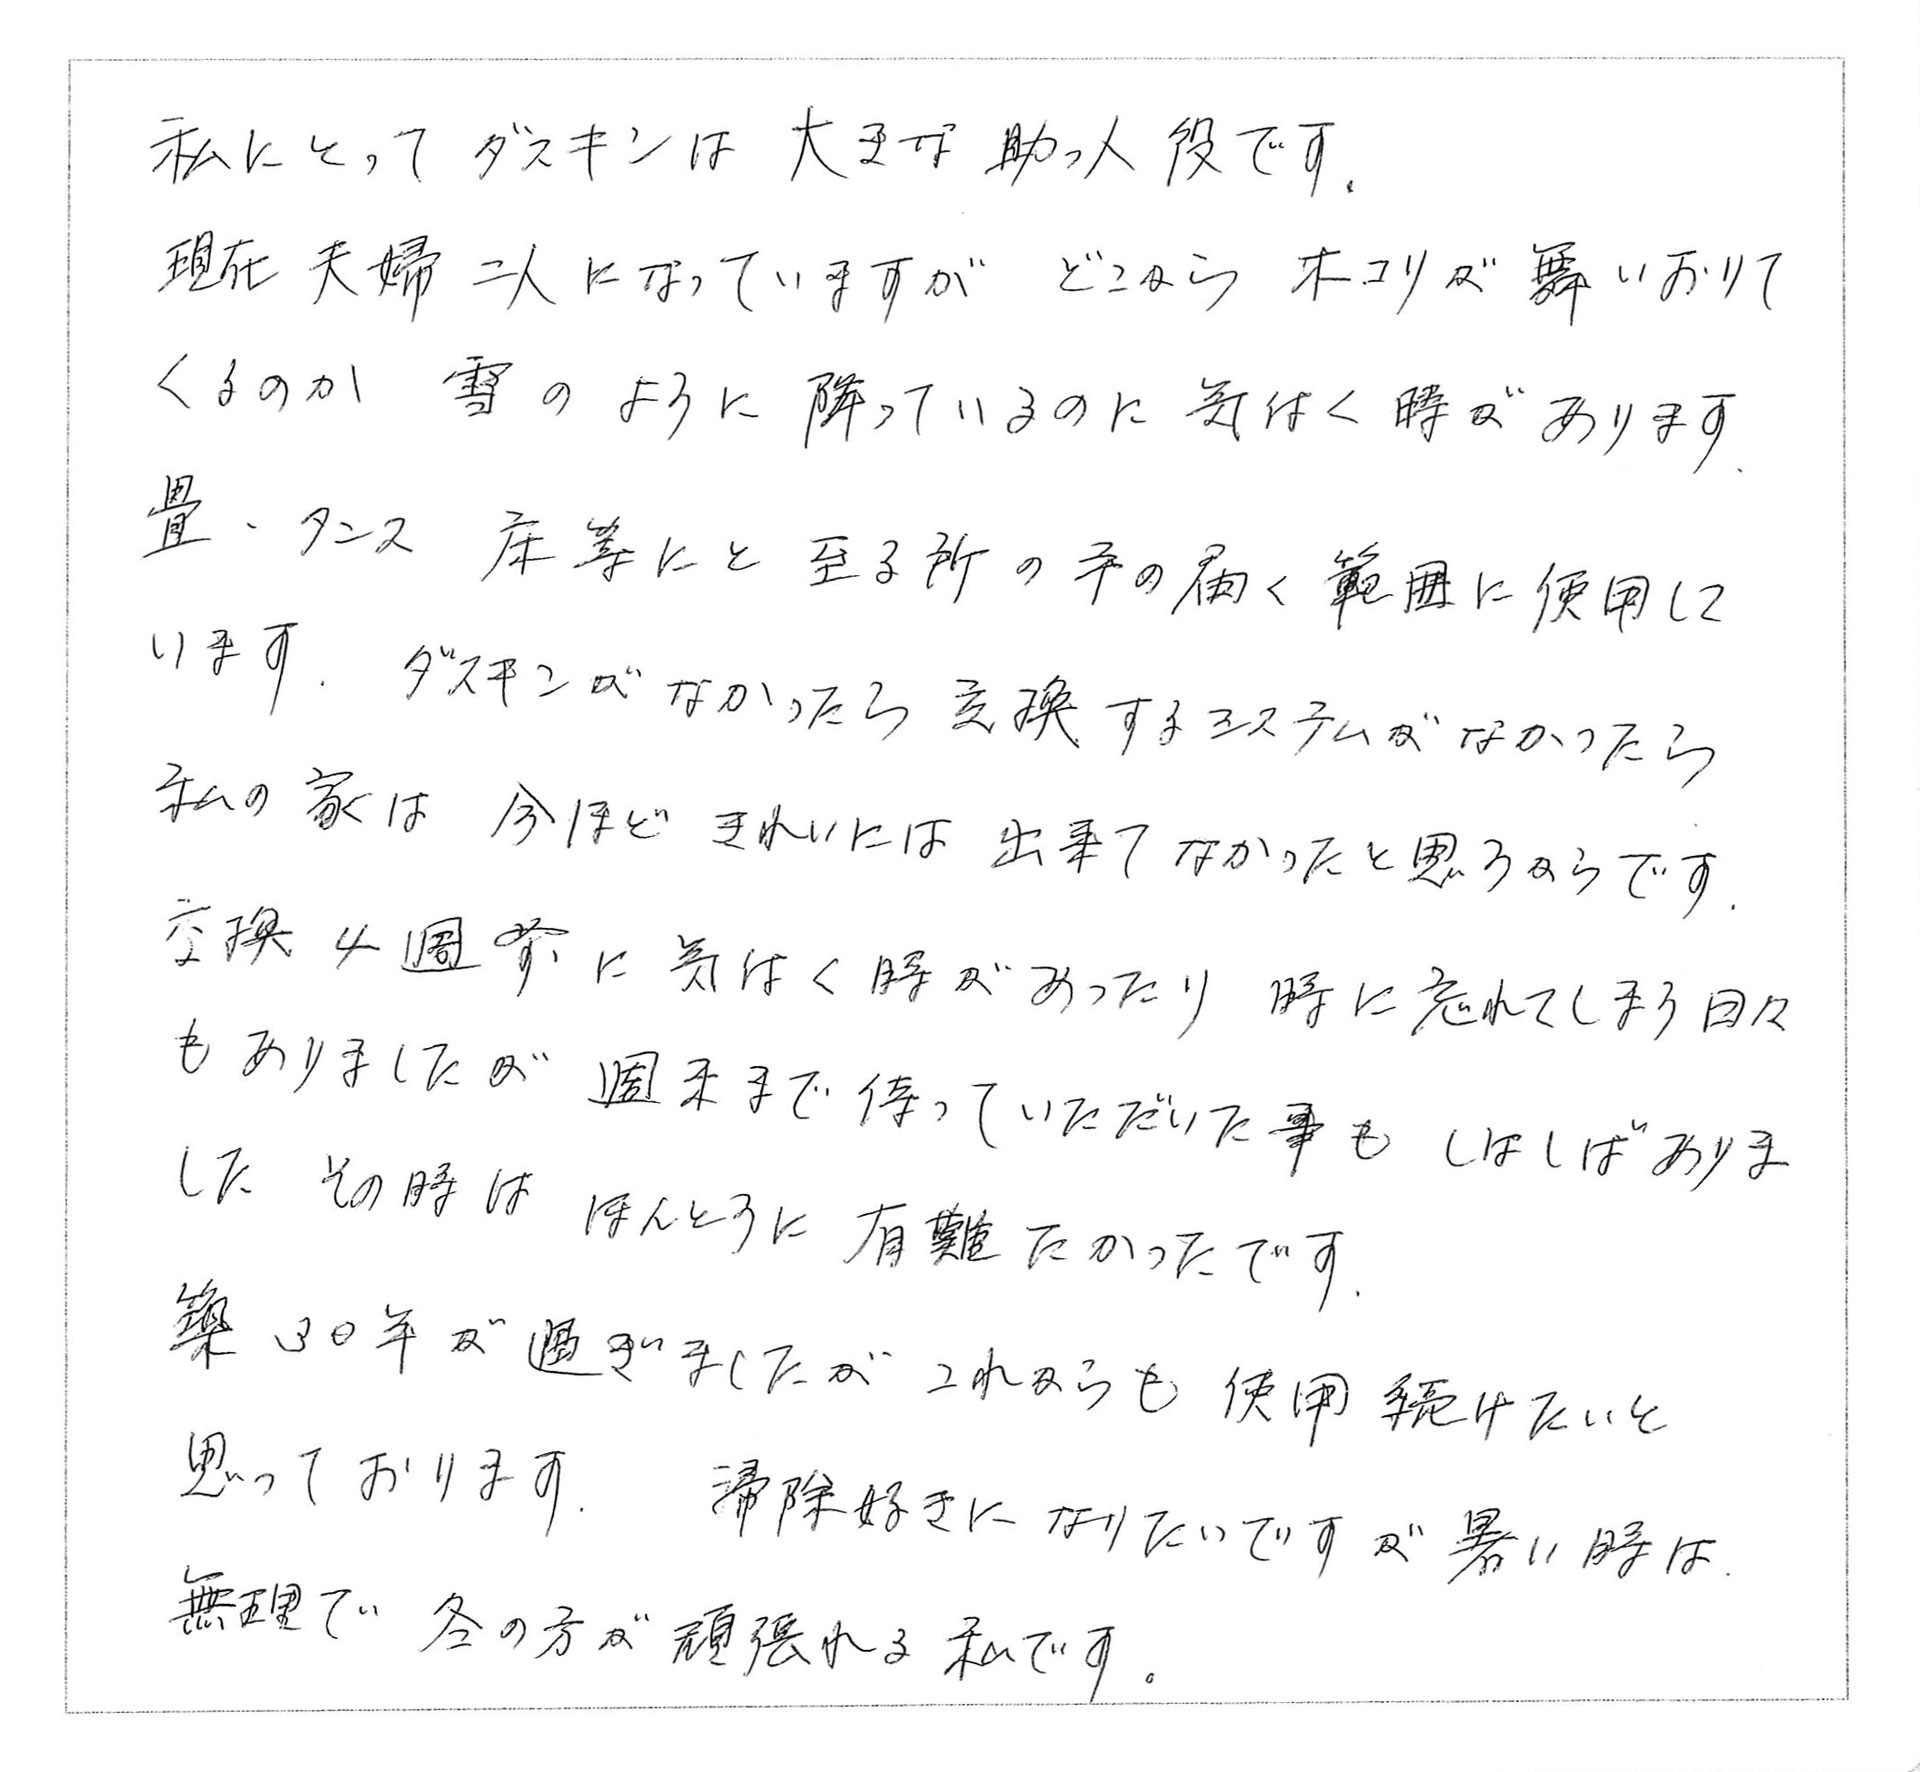 私にとってダスキンは 大きな 助っ人 役です.
現在 夫婦 二人になっていますが どこから ホコリが 舞いおりて
くるのか 雪のように 降っているのに 気付く 時があります.
畳・タンス 床等にと 至る所の手の届く範囲に使用して
います. ダスキンがなかったら 交換するシステムがなかったら
私の家は 今ほど きれいには 出来てなかったと思うからです.
交換 4週 前に 気付く時があったり 時に忘れてしまう日々
もありましたが 週末まで待っていただいた事も しばしばありま
した その時は ほんとうに 有難たかったです.
築30年が過ぎましたが これからも 使用 続けたいと
思っております. 掃除好きになりたいですが 暑い時は.
無理で 冬の方が頑張れる 私です。